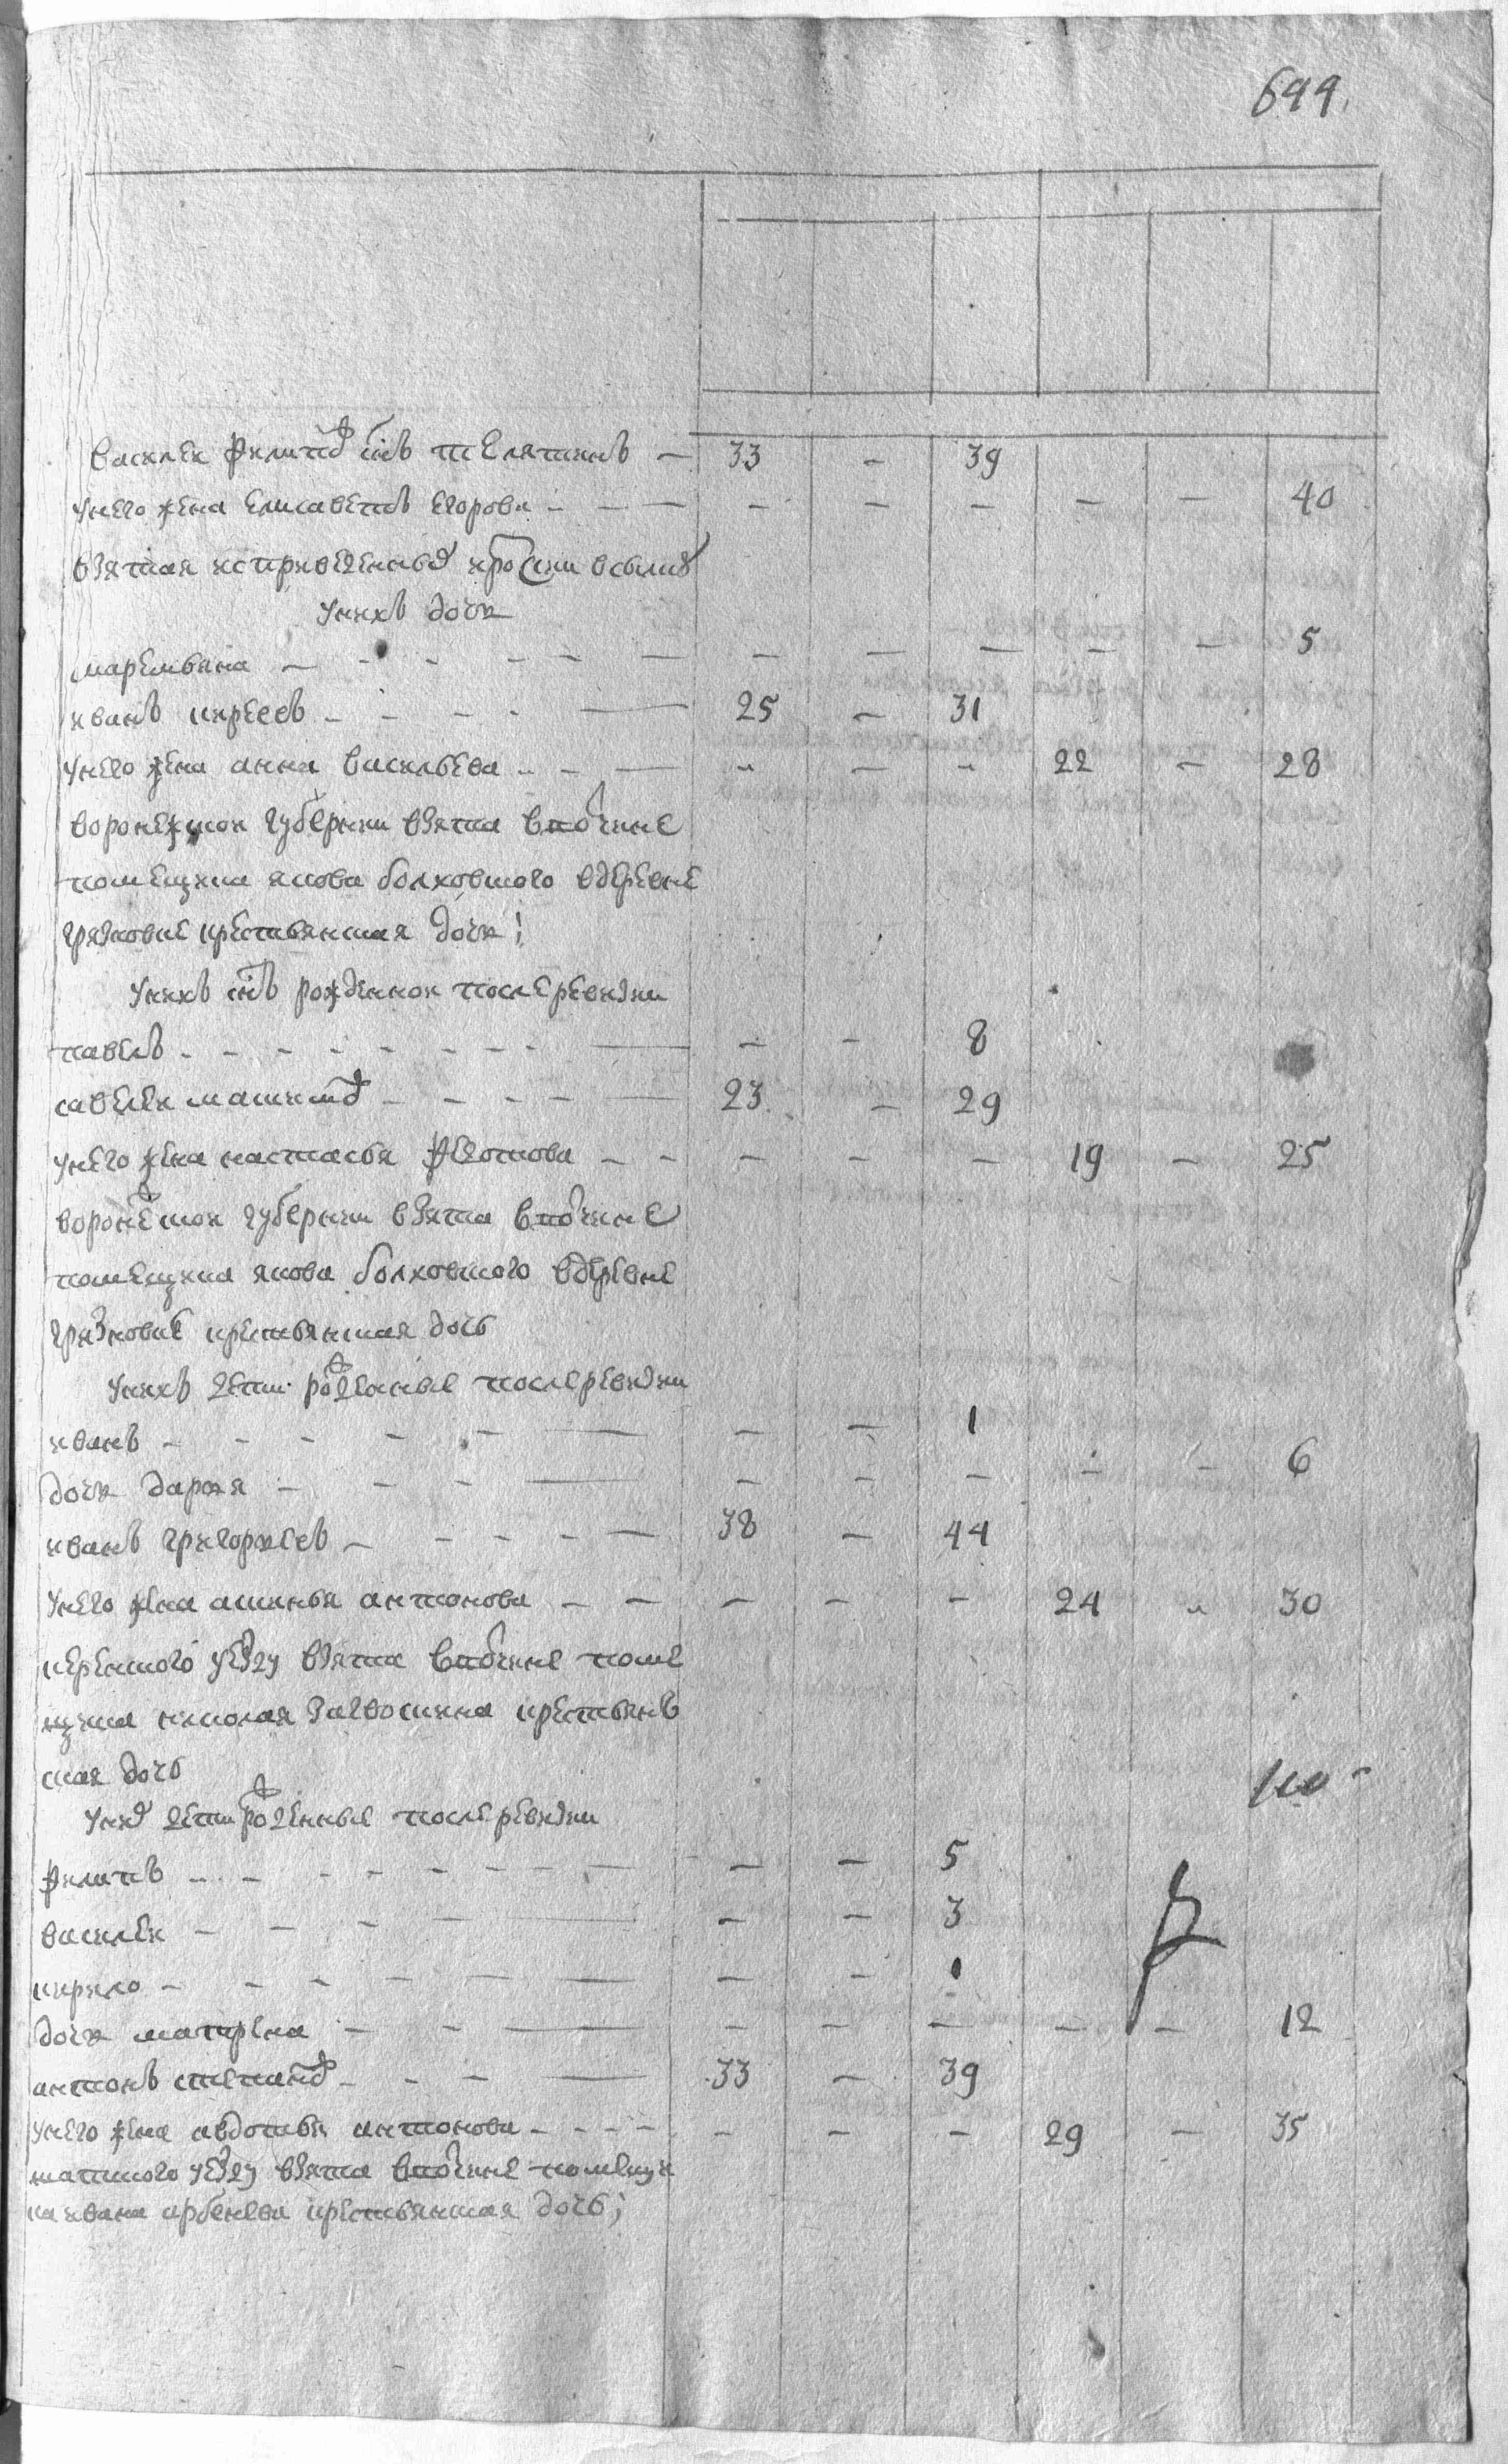 699
василеи филипов снъ телятинъ — 33 — 39
унего жена елисаветъ егорова — — — — — — — — 40
взятая исприведенных вссылку
унихъ дочи
маремьяна — — — — — — — — — — — 5
иванъ киреевъ — — — — — 25 — 31
унего жена анна васильева — — — — — — 22 — 28
воронежскои губернии взята вотчине
помещика якова болховского вдеревне
грязновке крестьянская дочи
унихъ снъ рожденнои послеревизии
павелъ — — — — — — — — — — 8
савелеи макимов — — — — — 23 — 29
унего жена настасья федотова — — — — — 19 — 25
воронежскои губернии взята вотчине
помещика якова болховского вдеревне
грязновке крестьянская дочь
унихъ дети рожденные послеревизии
иванъ — — — — — — — — 1
дочи дарья — — — — — — — — — 6
иванъ григорьевъ — — — — — 38 — 44
унего жена аксинья антонова — — — — — 24 — 30
керенского уезду взята вотчине поме
щика николая крестьянъ
ская дочь
уних дети рожденные послеревизии
филипъ — — — — — — — — — 5
василеи — — — — — — 3
кирило — — — — — — — — 1
дочи матрена — — — — — — — — — 12
антонъ степанов — — — — 33 — 39
унего жена авдотья антонова — — — — — — — 29 — 35
шацкого уезду взята вотчине помещи
ка ивана арбенева крестьянская дочь